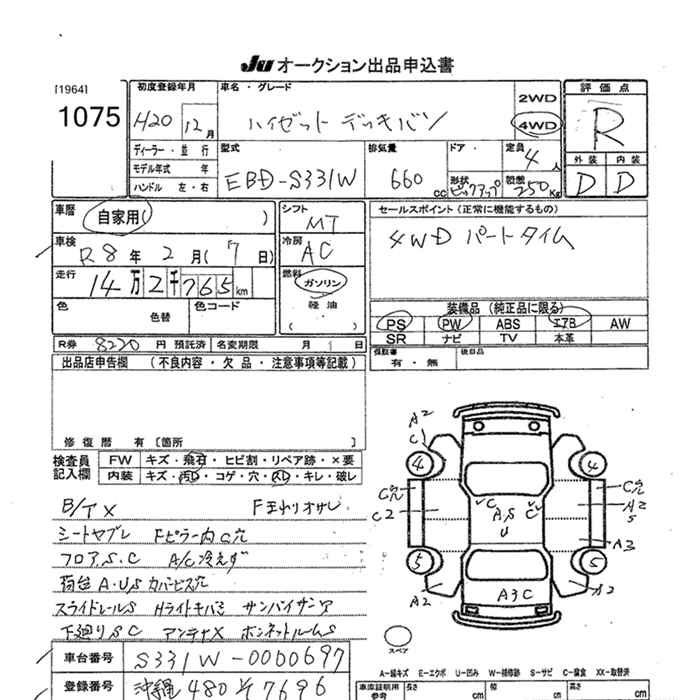 JU オークション出品申込書
[1964]
1075
初度登録年月
H20 12月
車名・グレード
ハイゼット デッキバン
2WD
4WD
評価点
R
外装 内装
D D
ディーラー・並行
モデル年式 年
ハンドル 左・右
型式
EBD-S331W
排気量
660 CC
ドア・形状
ピックアップ
定員
4人
積載
250Kg
車歴
自家用( )
車検
R8年 2月(17日)
走行
14万2千765km
色 色替
色コード
シフト
MT
冷房
AC
燃料
ガソリン
軽油
( )
セールスポイント(正常に機能するもの)
4WD パートタイム
装備品 (純正品に限る)
PS PW ABS エアB AW
SR ナビ TV 本革
R券 8220 円預託済 名変期限 月 1 日
保証書
有・無
後日品
出品店申告欄 (不良内容・欠品・注意事項等記載)
修復歴 有 [箇所 ]
検査員
記入欄
FW キズ・飛石・ヒビ割・リペア跡・×要
内装 キズ・汚D・コゲ・穴・スレ・キレ・破レ
B/T X
シートヤブレ Fピラー内C穴
フロアS.C A/C冷えず
荷台A.U.S カバービス穴
スライドレールS Hライトキバミ サンバイザーア
下廻りSC アンテナX ボンネットルームS
車台番号 S331W-0000697
登録番号 沖縄 480 そ 7696
A2
C1
4
4
C穴
C穴
C2
C
A,S
U
C
A2
S
A3
5
5
A2
A3C
A2
スペア
A-線キズ E-エクボ U-凹み W-補修跡 S-サビ C-腐食 XX-取替済
車庫証明用
参考
長さ cm
幅 cm
高さ cm